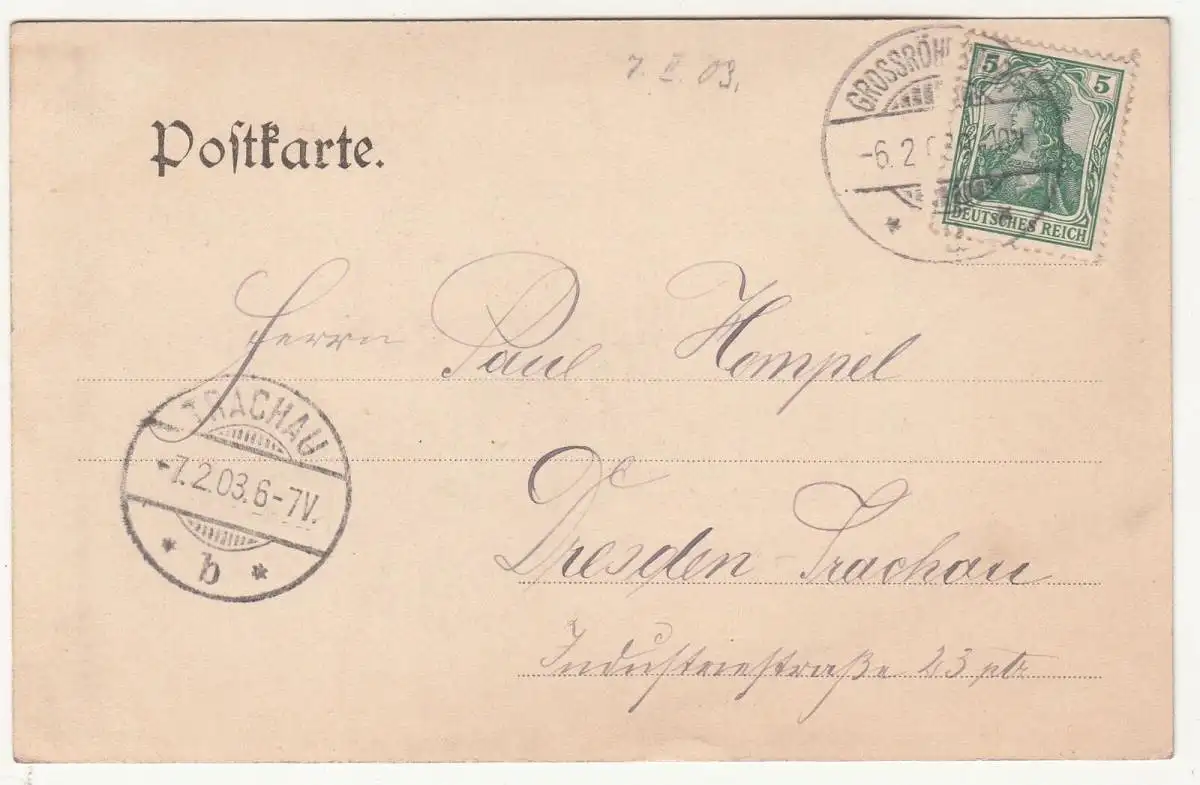 7. II. 03.
Postkarte.
GROSSRÖH
-6.2.0
5 5
DEUTSCHES REICH
Herrn Paul Hempel
Dresden-Trachau
Industriestraße 23 ptr
TRACHAU
-7.2.03.6-7V.
* b *